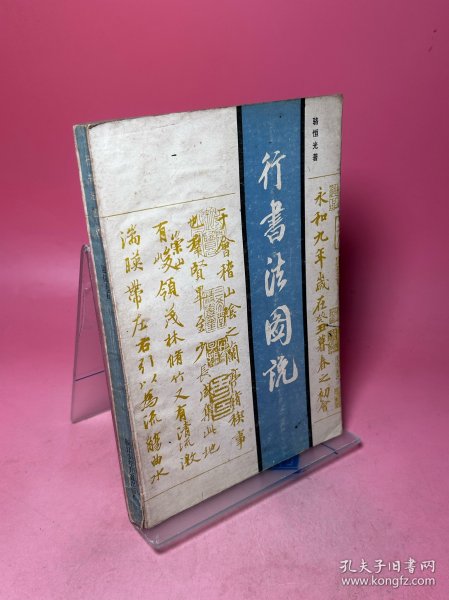 骆恒光著
行书法图说
永和九年岁在癸丑暮春之初会
于会稽山阴之兰亭脩禊事
也群贤畢至少長咸集此地
有崇山峻领茂林脩竹又有清流激
湍暎带左右引以為流觞曲水
孔夫子旧书网
www.kongfz.com